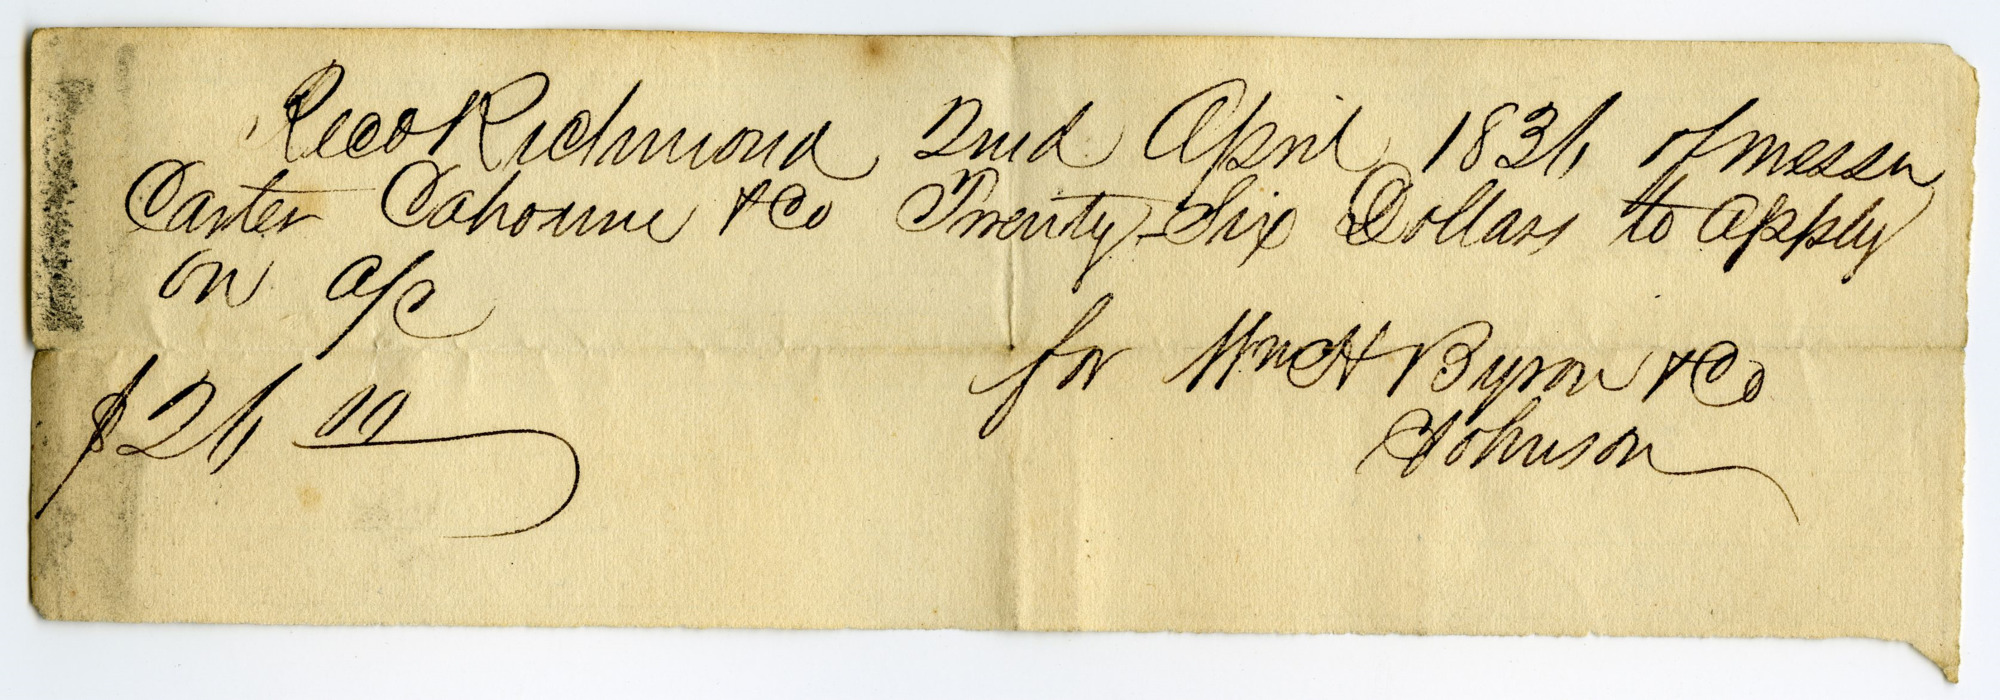 Recd Richmond 2nd April 1836 of Messrs
Carter Cahoune & Co Twenty-Six Dollars to apply
on a/c
for Wm H Byron & Co
$26 00
Johnson